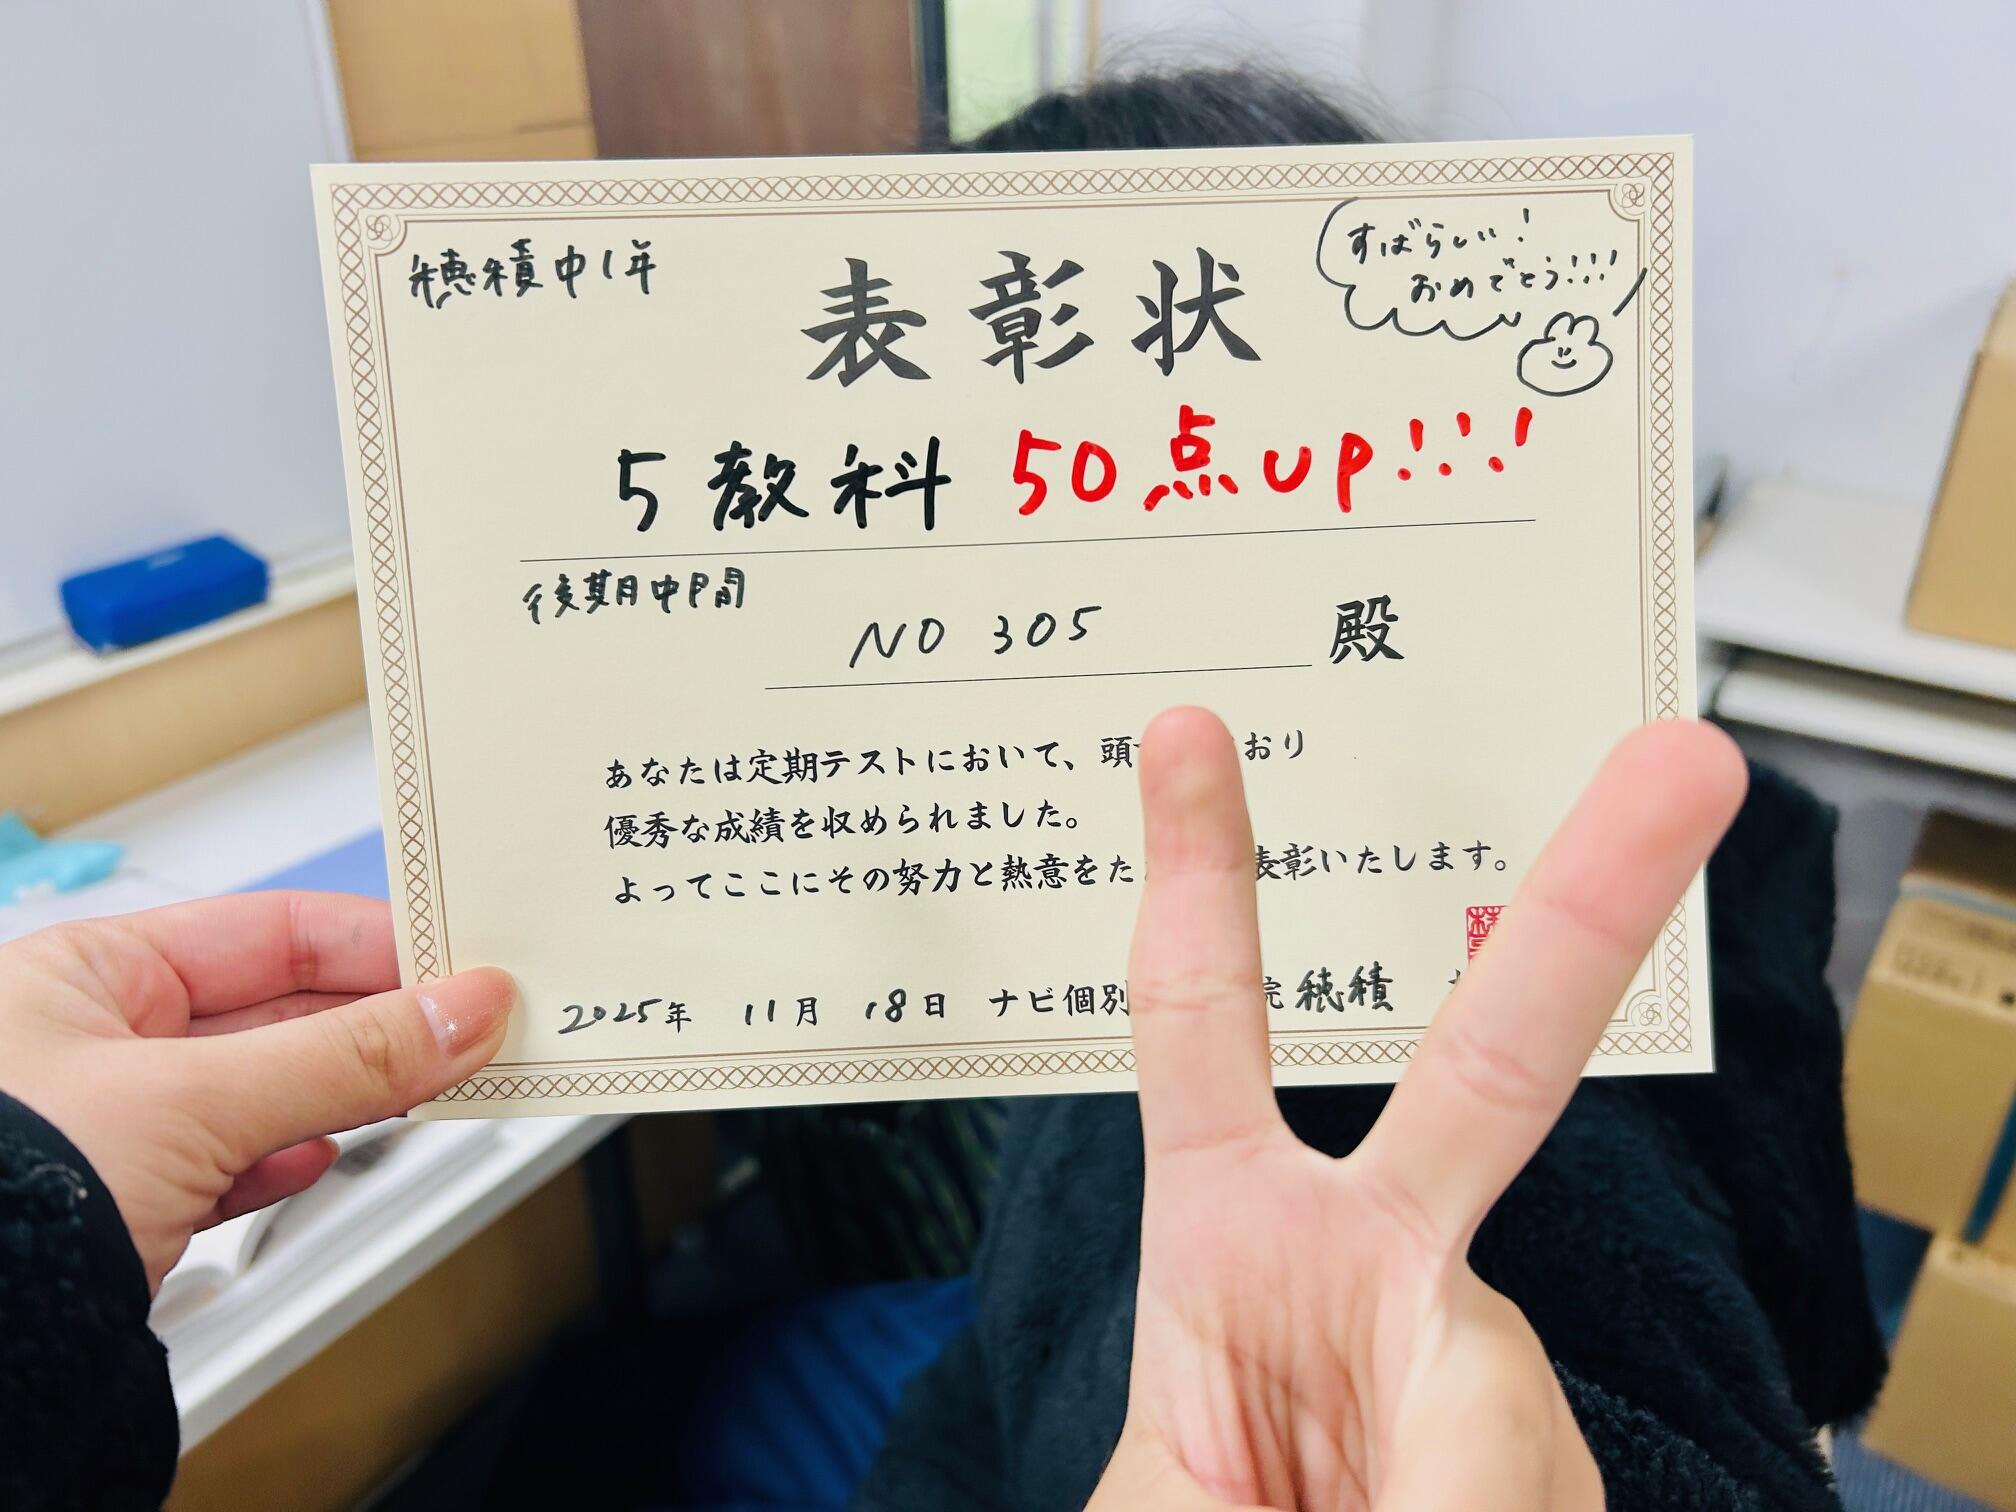 穂積中1年
表彰状
すばらしい!
おめでとう!!!
5教科 50点UP!!!
後期中間
NO 305 殿
あなたは定期テストにおいて、頭 おり
優秀な成績を収められました。
よってここにその努力と熱意をた 表彰いたします。
2025年 11月 18日 ナビ個別 院 穂積